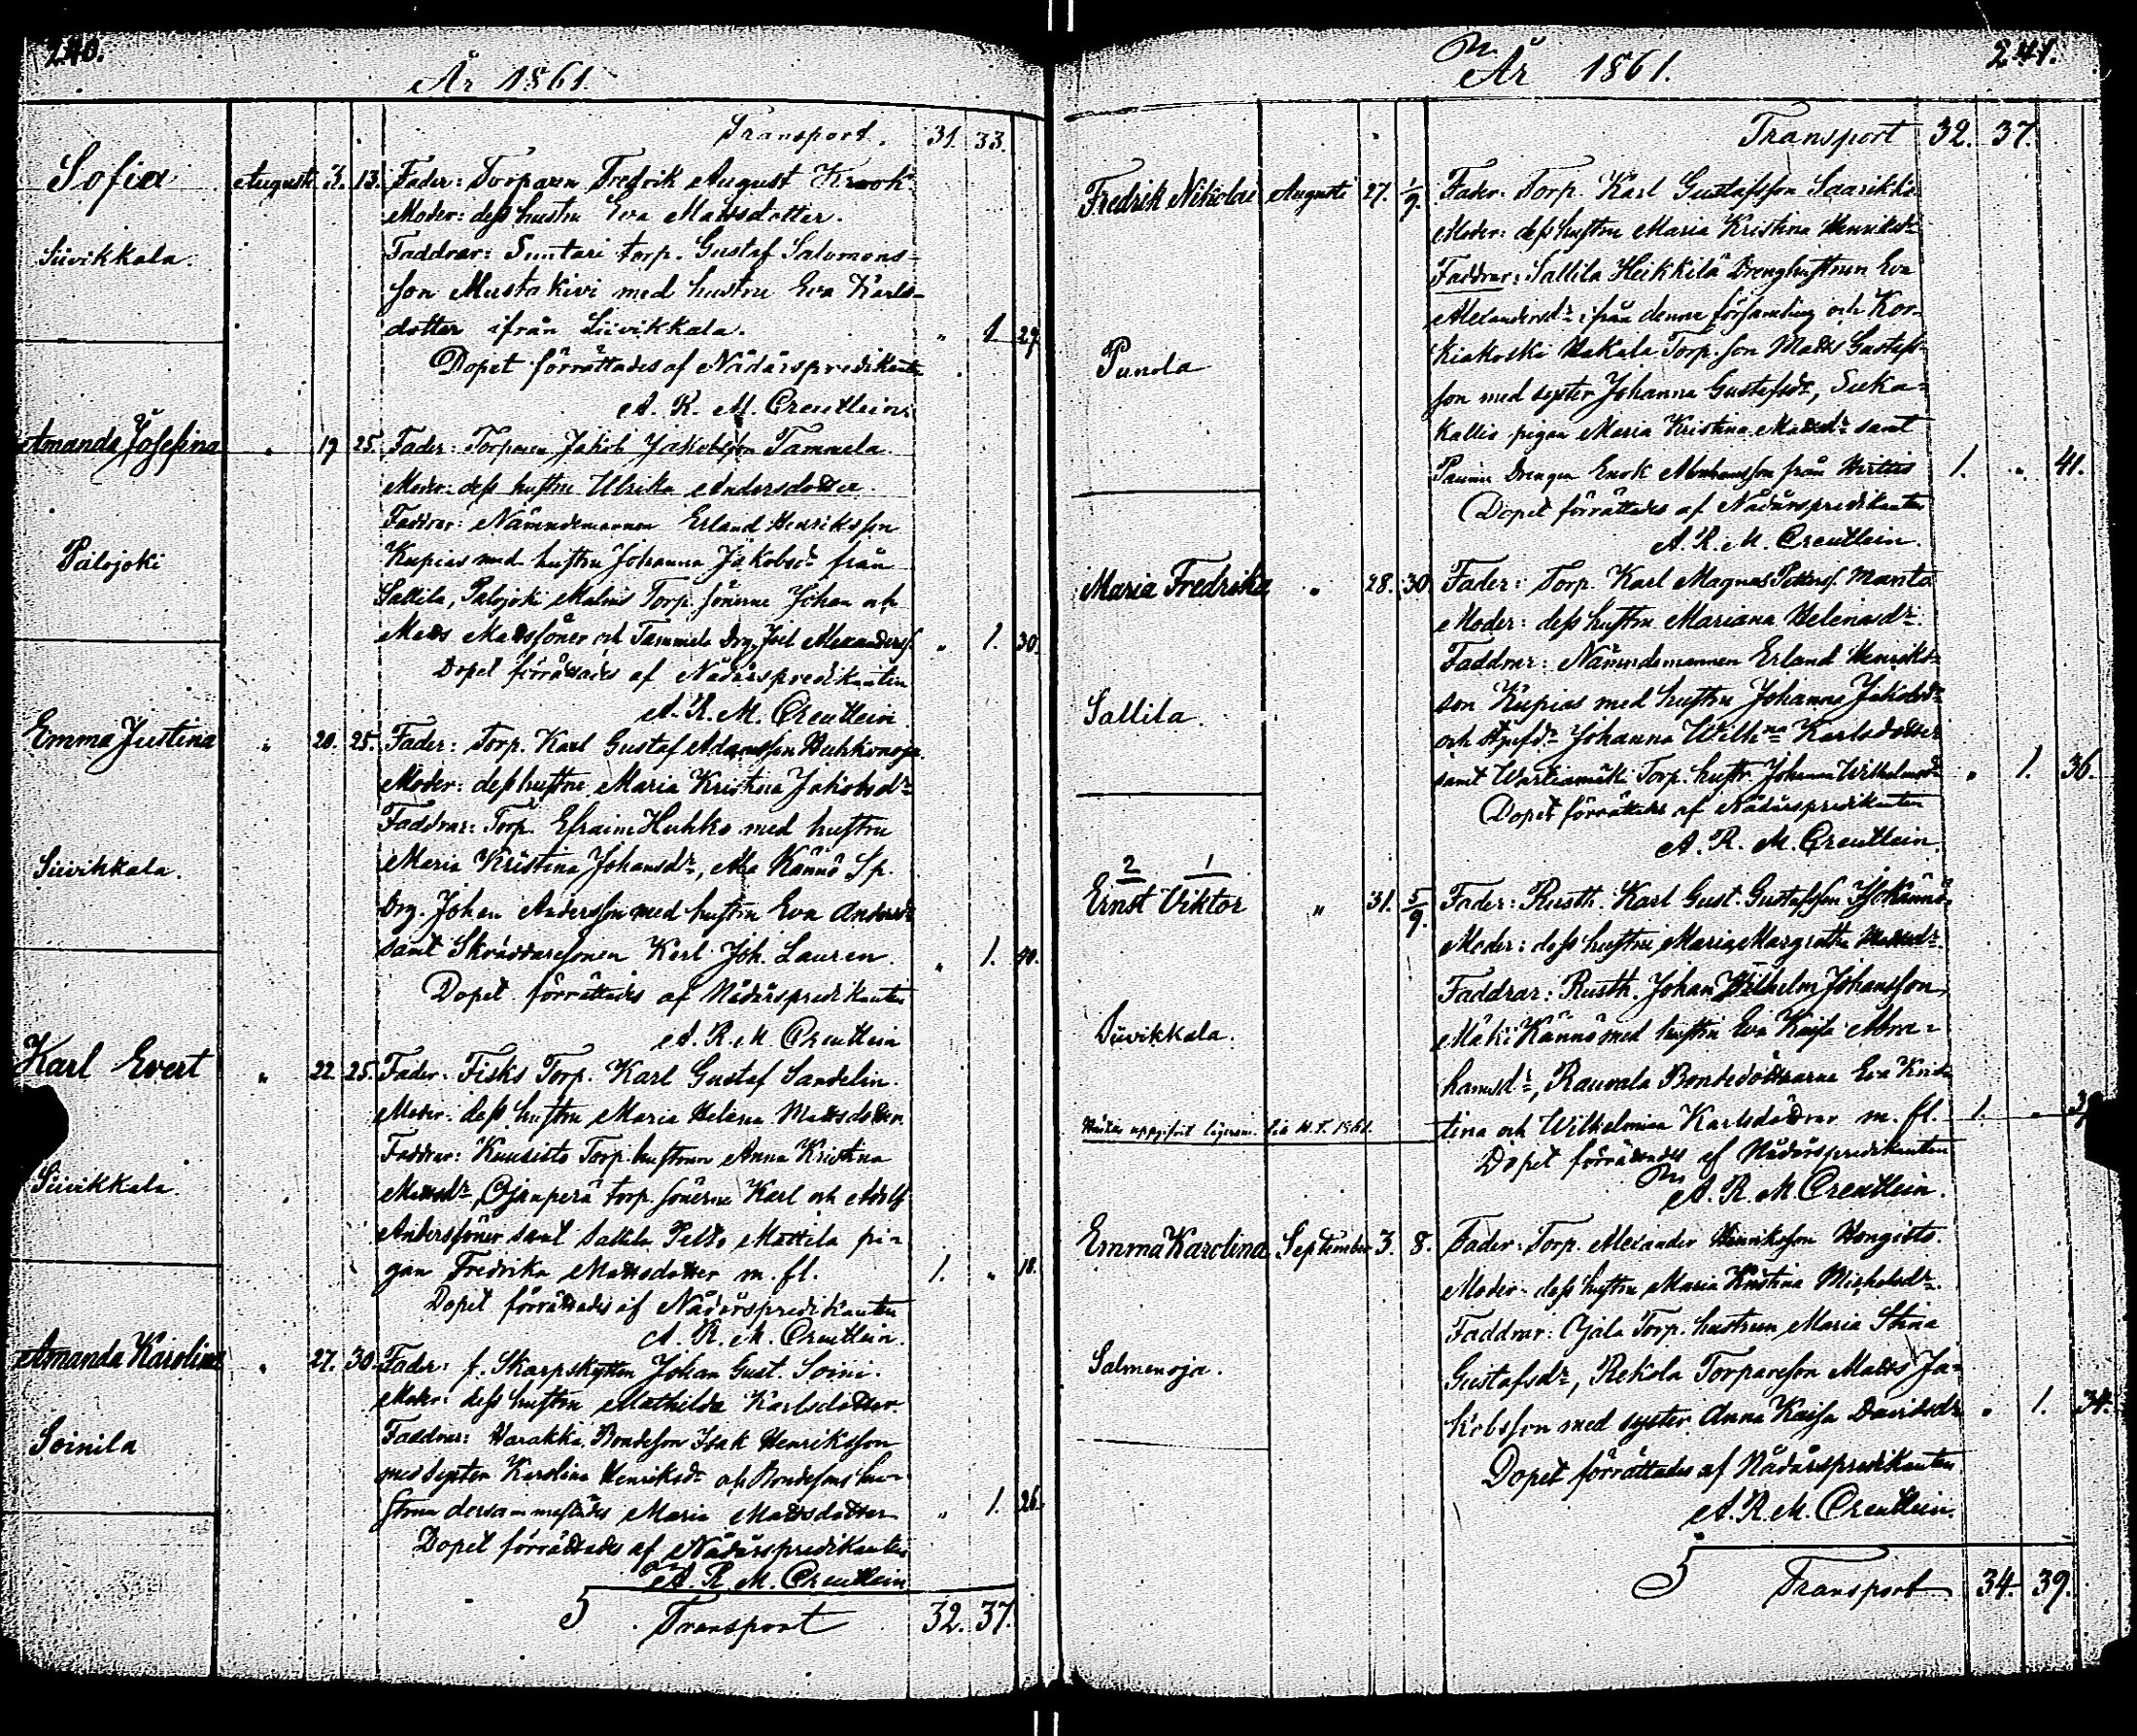 240.
År 1861.
Transport. 31. 33.
Sofia Augusti 3. 13. Fader: Torparen Fredrik August Krook
Moder: dess hustru Eva Mattsdotter.
Siivikkala. Faddrar: Suntari torp. Gustaf Salomons-
son Mustakivi med hustru Eva Karls-
dotter ifrån Siivikkala. " 1. 27.
Dopet förrättades af Nådårspredikanten
A. R. M. Creutlein.
Amanda Josefina " 19 25. Fader: Torparen Jakob Jakobsson Tammela.
Moder: dess hustru Ulrika Andersdotter.
Faddrar: Nämndemannen Erland Henriksson
Palojoki Kupias med hustru Johanna Jakobsdr från
Sallila, Palojoki Malms Torp. sönerne Johan och
Matts Mattssöner och Tammela Drg. Joel Alexanders. " 1. 30.
Dopet förrättades af Nådårspredikanten
A. R. M. Creutlein
Emma Justina " 20. 25. Fader: Torp. Karl Gustaf Adamsson Huhkonoja.
Moder: dess hustru Maria Kristina Jakobsdr
Faddrar: Torp. Efraim Huhko med hustru
Siivikkala. Maria Kristina Johansdr, Ala Kännö Sp.
Drg. Johan Andersson med hustru Eva Andersdr
samt Skräddaresonen Karl Joh. Lauren. " 1. 40.
Dopet förrättades af Nådårspredikanten
A. R. M. Creutlein
Karl Evert " 22. 25. Fader: Fisks Torp. Karl Gustaf Sandelin.
Moder: dess hustru Maria Helena Mattsdotter.
Faddrar: Kuusisto Torp. hustrun Anna Kristina
Siivikkala. Mattsdr, Ojanperä torp. sönerne Karl och Adolf
Anderssöner samt Sallila Pelto Mattila pi-
gan Fredrika Mattsdotter m. fl. 1. " 18.
Dopet förrättades af Nådårspredikanten
A. R. M. Creutlein.
Amanda Karolina " 27. 30. Fader: f. Skarpskytten Johan Gust. Soini.
Moder: dess hustru Mathilda Karlsdotter
Soinila Faddrar: Harakka Bondeson Isak Henriksson
med syster Karolina Henriksdr och Bondesons hu-
strun dersammastädes Maria Mattsdotter " 1. 26.
Dopet förrättades af Nådårspredikanten
A. R. M. Creutlein
5 Transport 32. 37.
År 1861. 241.
Transport 32. 37.
Fredrik Nikolai Augusti 27. 1/9. Fader: Torp. Karl Gustafsson Saarikko
Moder: dess hustru Maria Kristina Henriksdr
Faddrar: Sallila Heikkilä Drenghustrun Eva
Alexandersdr ifrån denna församling och Kor-
Punola kiakoski Hakala Torp. son Matts Gustafs-
son med syster Johanna Gustafsdr,
kallio pigan Maria Kristina Mattsdr samt
Drengen Enok Abrahamsson från 1. " 41.
Dopet förrättades af Nådårspredikanten
A. R. M. Creutlein.
Maria Fredrika " 28. 30. Fader: Torp. Karl Magnus Petterss. Manta
Moder: dess hustru Mariana Helenasdr.
Faddrar: Nämndemannen Erland Henriks-
Sallila. son Kupias med hustru Johanna Jakobsdr
och Johanna Wilhna Karlsdotter
samt Wartiamäki Torp. hustr. Johanna Wilhelmsdr " 1. 36.
Dopet förrättades af Nådårspredikanten
A. R. M. Creutlein.
2 1
Ernst Viktor " 31. 5/9. Fader: Rusth. Karl Gust. Gustafsson Isokännö.
Moder: dess hustru Maria Margretha Mattsdr.
Faddrar: Rusth. Johan Wilhelm Johansson
Siivikkala. Mäki Kännö med hustru Eva Kaisa Abra-
hamsdr, Rauvala Bondedöttrarne Eva Kris-
tina och Wilhelmina Karlsdöttrar m. fl. 1. "
Dopet förrättades af Nådårspredikanten
A. R. M. Creutlein.
Emma Karolina September 3. 8. Fader: Torp. Alexander Henriksson Hongisto.
Moder: dess hustru Maria Kristina Michelsdr.
Faddrar: Ojala Torp. hustrun Maria Stina
Salmenoja. Gustafsdr, Rekola Torpareson Matts Ja-
kobsson med syster Anna Kaisa Davidsdr " 1. 34.
Dopet förrättades af Nådårspredikanten
A. R. M. Creutlein.
5 Transport 34. 39.